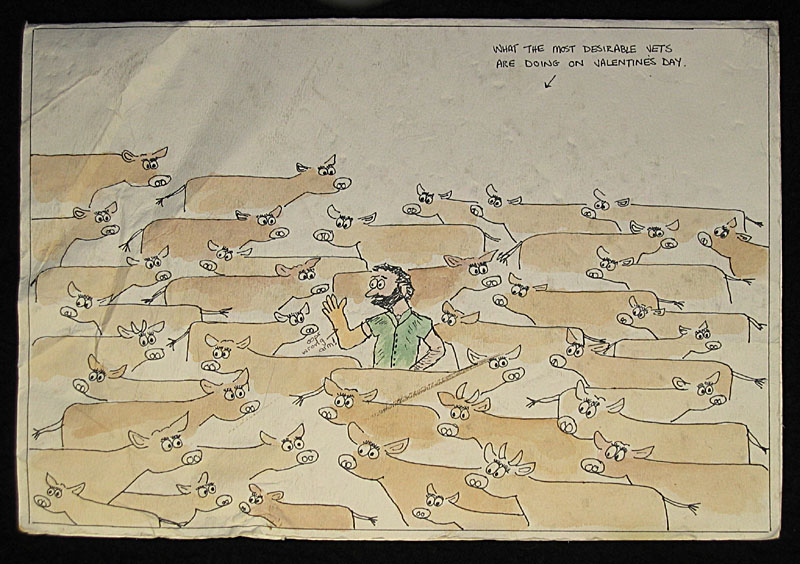 WHAT THE MOST DESIRABLE VETS
ARE DOING ON VALENTINE'S DAY.
wrong
arm!